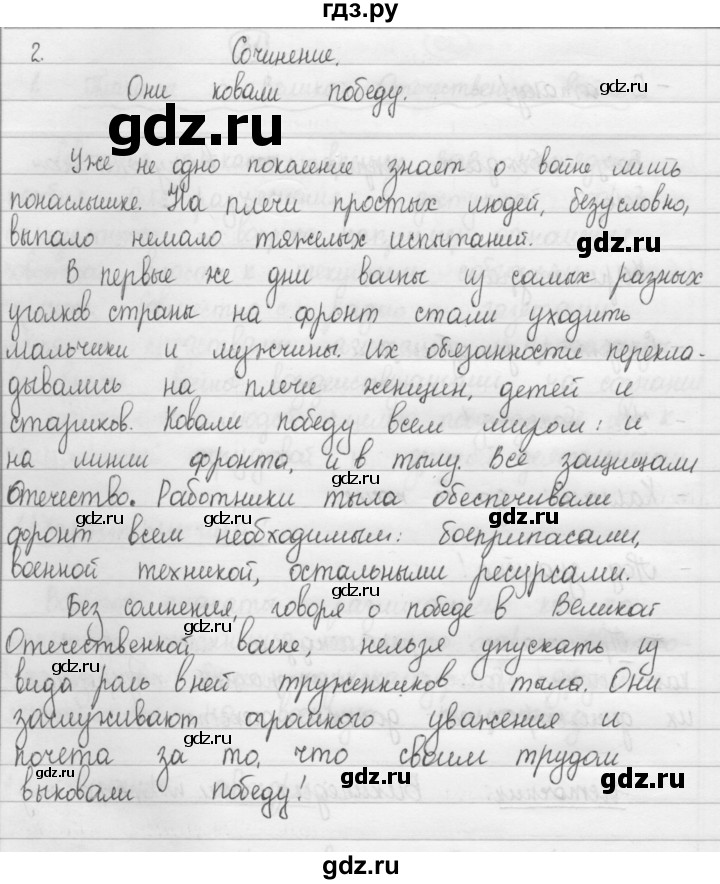 гдз.ру
2. Сочинение.
Они ковали победу.
gdz.ru
gdz.ru
Уже не одно поколение знает о войне лишь
понаслышке. На плечи простых людей, безусловно,
выпало немало тяжелых испытаний.
gdz.ru
gdz.ru
В первые же дни войны из самых разных
уголков страны на фронт стали уходить
мальчики и мужчины. Их обязанности перекла-
дывались на плечи женщин, детей и
gdz.ru
стариков. Ковали победу всем миром: и
на линии фронта, и в тылу. Все защищали
gdz.ru
Отечество. Работники тыла обеспечивали
gdz.ru
фронт всем необходимым: боеприпасами,
gdz.ru
военной техникой, остальными ресурсами.
gdz.ru
Без сомнения, говоря о победе в Великой
gdz.ru
Отечественной войне нельзя упускать из
gdz.ru
вида роль в ней тружеников тыла. Они
заслуживают огромного уважения и
gdz.ru
gdz.ru
почета за то, что своим трудом
gdz.ru
gdz.ru
gdz.ru
выковали победу!
gdz.ru